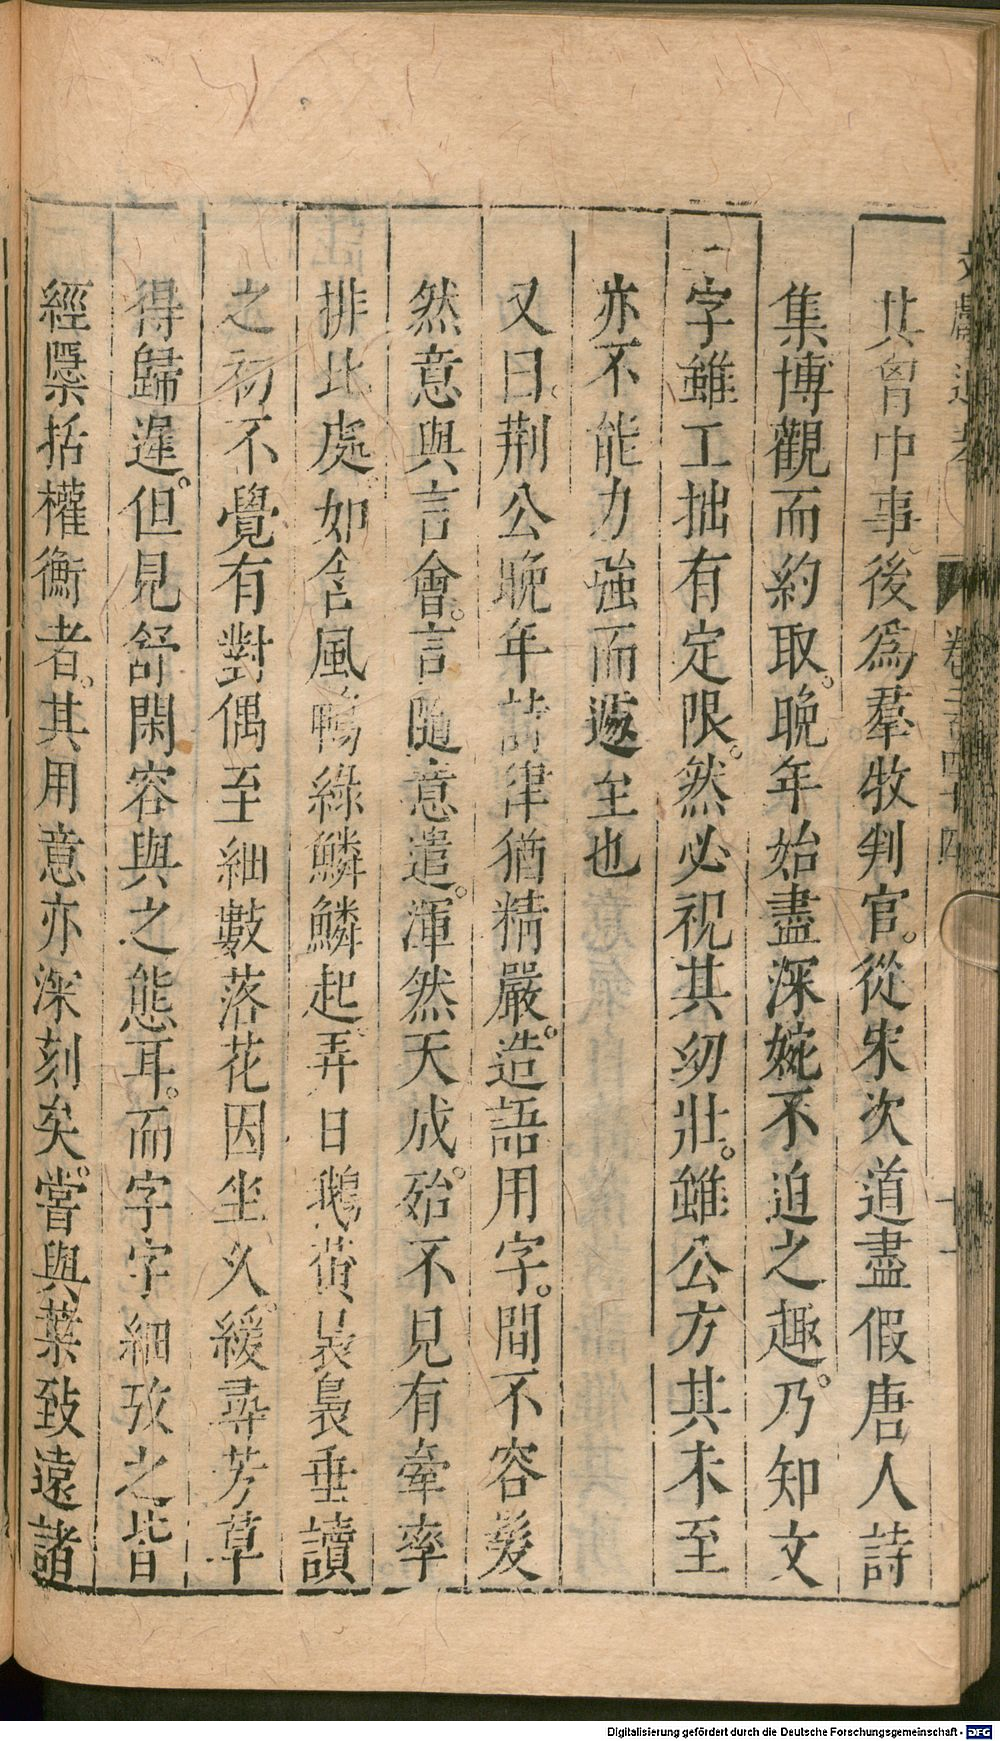 其胷中事。後爲羣牧判官。從宋次道盡假唐人詩
集博觀而約取。晚年始盡深婉不迫之趣。乃知文
字雖工拙有定限。然必視其㓜壯。雖公方其未至
亦不能力強而遽至也
又曰。荆公晚年詩律猶精嚴。造語用字。間不容髮
然意與言會。言隨意遣。渾然天成。殆不見有牽率
排比處。如含風鴨綠鱗鱗起。弄日鵝黃裊裊垂讀
之初不覺有對偶至細數落花因坐久。緩尋芳草
得歸遲。但見舒閑容與之態耳。而字字細攷之皆
經隱括權衡者。其用意亦深刻矣。嘗與葉致遠諸
卷二百四十四
十一
Digitalisierung gefördert durch die Deutsche Forschungsgemeinschaft - DFG